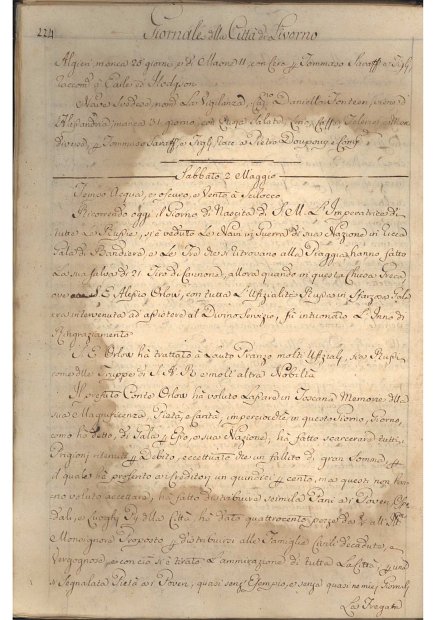 224 Giornale della Città di Livorno
Algieri, manca 26 giorni, e di Maone 11, con Cera, p Tommaso Saraff e Figli,
raccom. à Earle ed Hodgson
Nave Svedese, nom. La Vigilanza, Cap.no Daniello Fonteen, viene d'
Alessandria, manca 31 giorno, con Cuoja Salate, Lino, Caffè,
diversi, p Tommaso Saraff, e Figli, Pietro Doupouy, e Comp.
Sabbato 2 Maggio
Tempo Acqua, e oscuro, e Vento à Scilocco
Ricorrendo oggi il Giorno di Nascita di S. M. L'Imperatrice di
tutte le Russie, si è veduto Le Navi in Guerra di sua Nazione in ricca
Gala di Bandiere, e Le Tre che si ritrovano alla Piaggia hanno fatto
La sua salva di 21 Tiro di Cannone, allora quando in questa Chiesa Greca
ove S. E. Alessio Orlow, con tutta L'Ufizialità Russa in Stanza, e Gala
era intervenuta ad assistere al Divino Servizio, fù intuonato L'Inno di
Ringraziamento
S. E. Orlow hà trattato à Lauto Pranzo molti Ufiziali, sia Russi
come delle Truppe di S. A. R. e molt'altra Nobiltà
Il prefato Conte Orlow hà voluto Lasciare in Toscana Memorie della
sua Magnificenza, Pietà, e Carità, imperciocchè in questo Giorno, Giorno,
come hò detto, di Gala p Esso, e sua Nazione, hà fatto scarcerare tutti i
Prigioni ritenuti p Debito, eccettuato che un fallito di gran Somma, p
il quale hà profferito ai Creditori un quindici p cento, ma questi non hanno
voluto accettare, hà fatto distribuire seimila Pani ai Poveri,
dali, e Luoghi Pij della Città, hà dato quattrocento pezze da 8/r all'
Monsignore Proposto p distribuirsi alle Famiglie Civili decadute, e
Vergognose, e con ciò si è tirato L'ammirazione di tutta La Città, p una
sì Segnalata Pietà ai Poveri, quasi senz'Esempio, e senza quasi
La Fregata